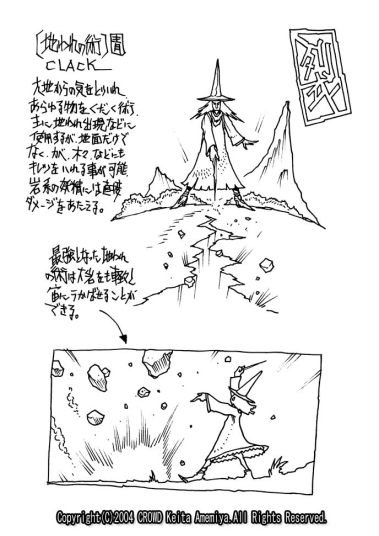 [地われの術]
CLACK
大地からの気をとりいれ
あらゆる物をくだく術.
主に地われ出現などに
使用するが、地面だけで
なく、カベ、木々、などにも
キレツをいれる事が可能.
岩系の妖精には直接
ダメージをあたえる。
最強となった地われ
の術は大岩をも
宙にうかばせることが
できる。
Copyright(C)2004 CROWD Keita Amemiya.All Rights Reserved.